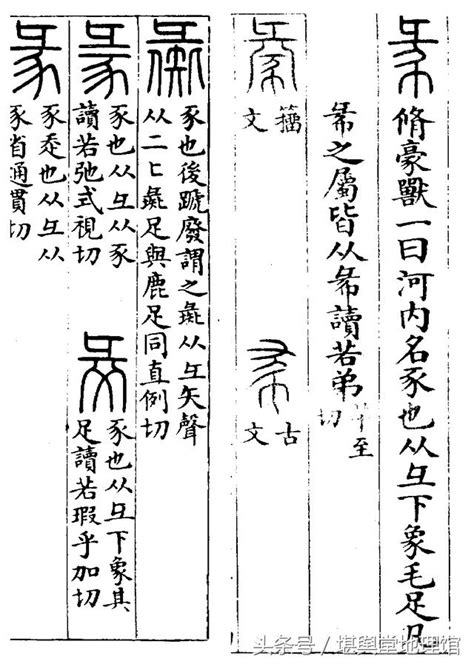 㣇 脩豪獸一曰河內名豕也从彑下象毛足凡
㣇之屬皆从㣇讀若弟
羊至
切
籀
文
古
文
彘 豕也後蹏廢謂之彘从彑矢聲
从二匕彘足與鹿足同直例切
豕也从彑从豕
讀若弛式視切
豕也从彑下象其
足讀若瑕乎加切
彖 豕走也从彑从
豕省通貫切
头条号 / 堪舆堂地理馆